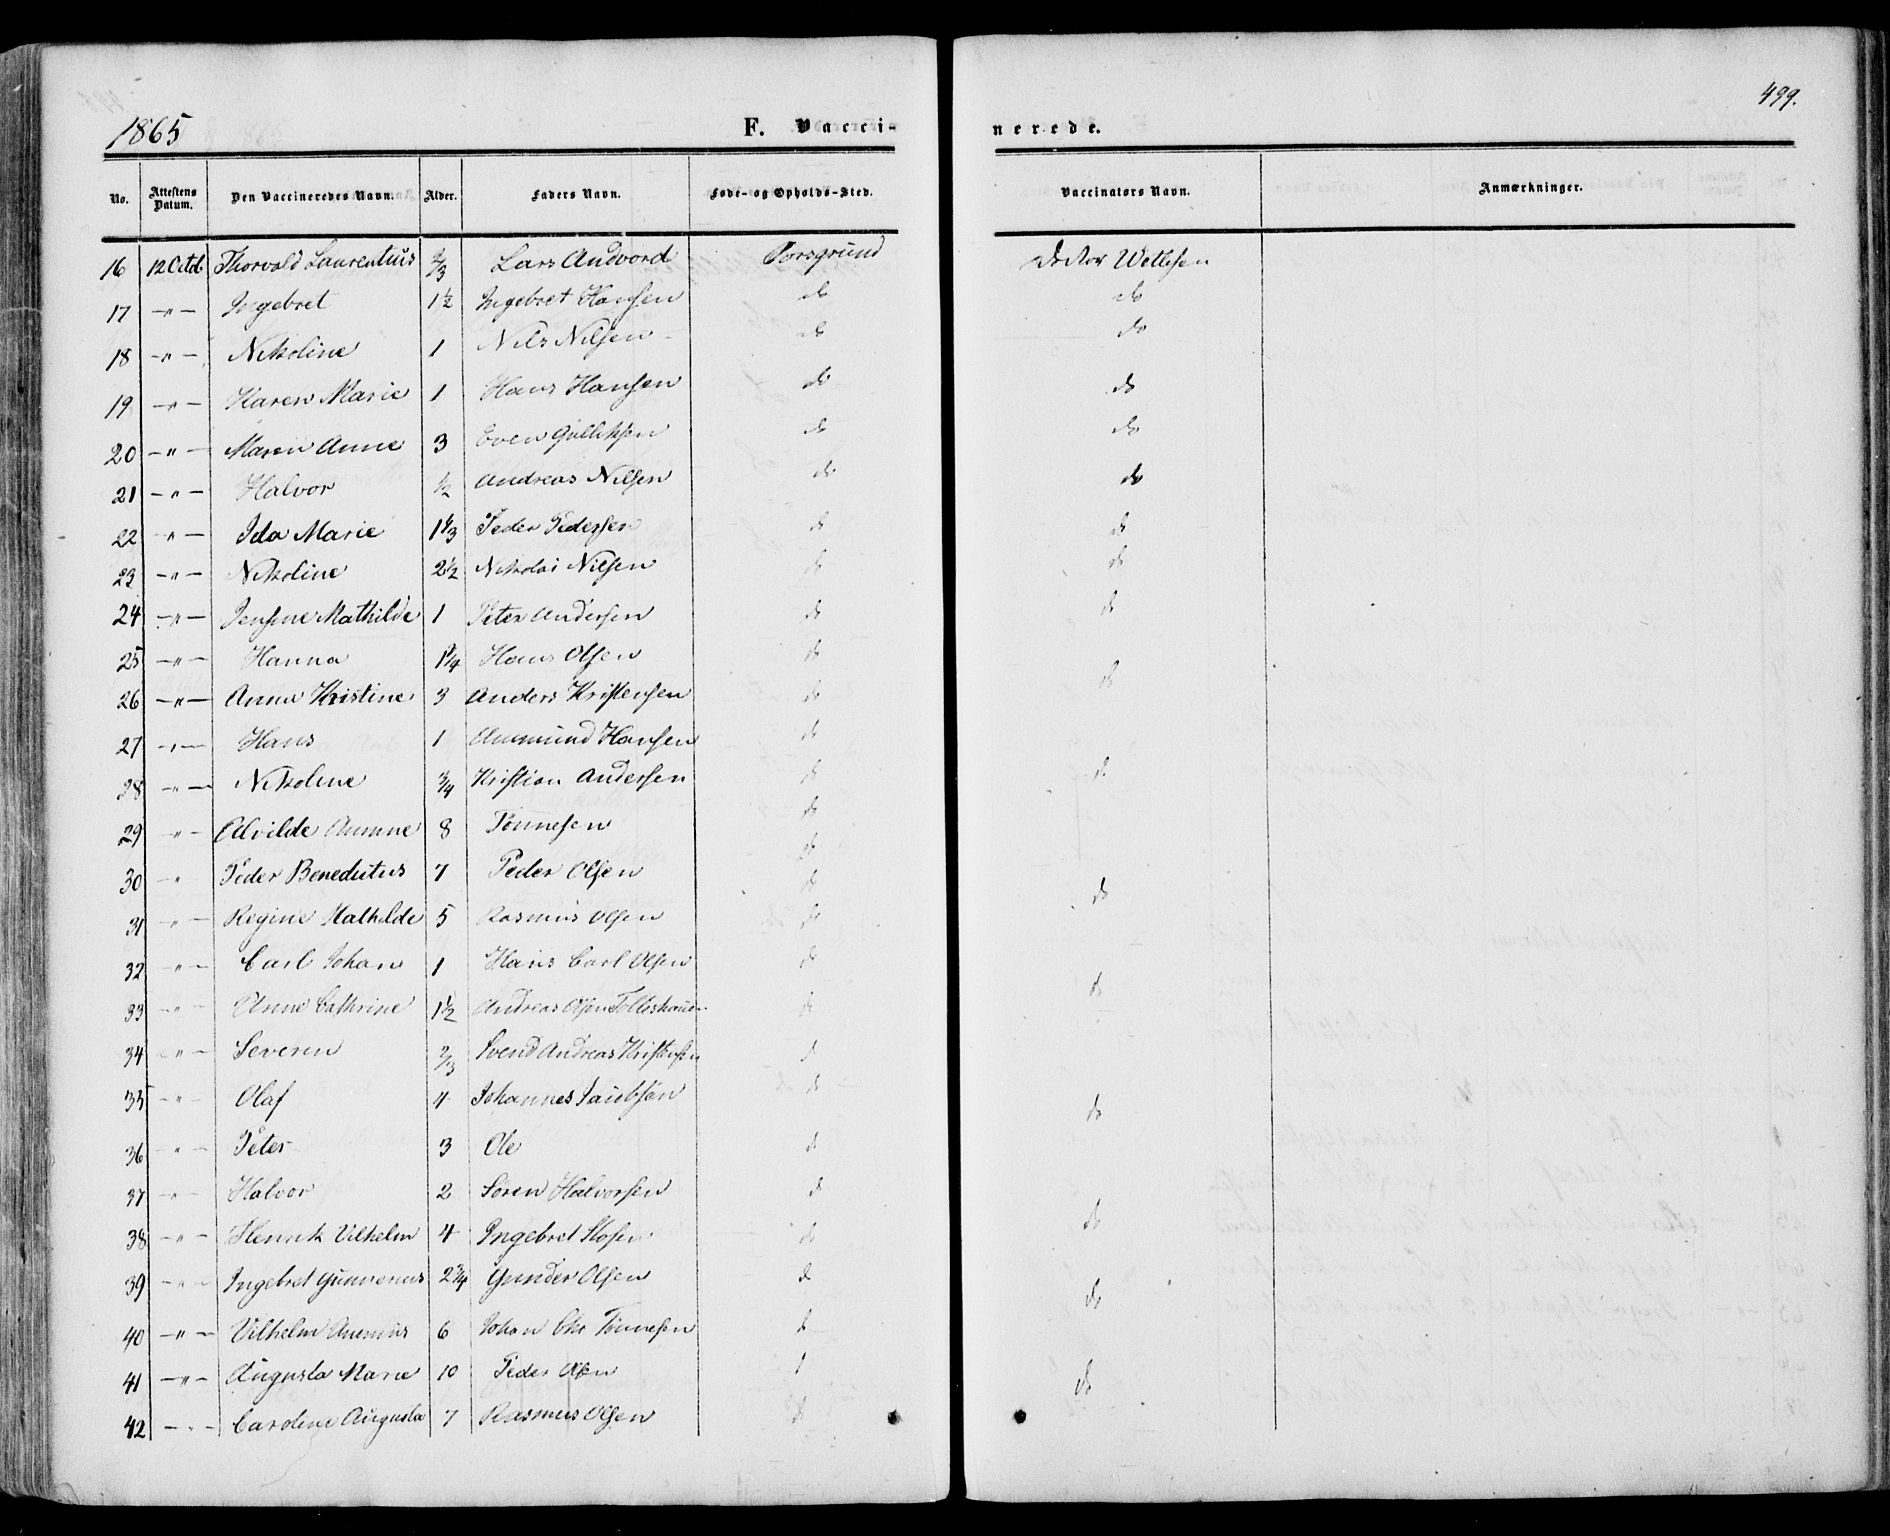 499.
1865 F. Vaccinerede.
No. Attestens Datum. Den Vaccineredes Navn. Alder. Faders Navn. Føde- og Opholds-Sted. Vaccinators Navn. Anmærkninger.
16 12 Octb Thorvald Laurentius 2/3 Lars Andvord Porsgrund Doktor Wetlesen
17 -"- Ingebret 1 1/2 Ingebret Hansen do do
18 -"- Nikoline 1 Nils Nilsen do do
19 -"- Karen Marie 1 Hans Hansen do do
20 -"- Maren Anne 3 Even Gulliksen do do
21 -"- Halvor 1/2 Andreas Nilsen do do
22 -"- Ida Marie 1 1/3 Peder Pedersen do do
23 -"- Nikoline 2 1/2 Nikolai Nilsen do do
24 -"- Jensine Mathilde 1 Peter Andersen do do
25 -"- Hanna 1 1/4 Hans Olsen do
26 -"- Anna Kristine 3 Anders Kristensen do do
27 -"- Hans 1 Aamund Hansen do
28 -"- Nikoline 3/4 Kristian Andersen do do
29 -"- Alvilde 8 Tønnesen do
30 " Peder Benedictus 7 Peder Olsen do do
31 -"- Regine Mathilde 5 Rasmus Olsen do
32 -"- Carl Johan 1 Hans Carl Olsen do
33 -"- Anne Cathrine 1 1/2 Andreas Olsen do do
34 -"- Severin 2/3 Svend Andreas Kristensen do
35 -"- Olaf 4 Johannes Jacobsen do do
36 -"- Peter 3 Ole do
37 -"- Halvor 2 Søren Halvorsen do
38 -"- Henrik Vilhelm 4 Ingebret do do
39 -"- Ingebret Gunnerius 2 3/4 Gunder Olsen do do
40 -"- Vilhelm 6 Johan Chr Tønnesen do
41 -"- Augusta Marie 10 Peder Olsen do do
42 -"- Caroline Augusta 7 Rasmus Olsen do